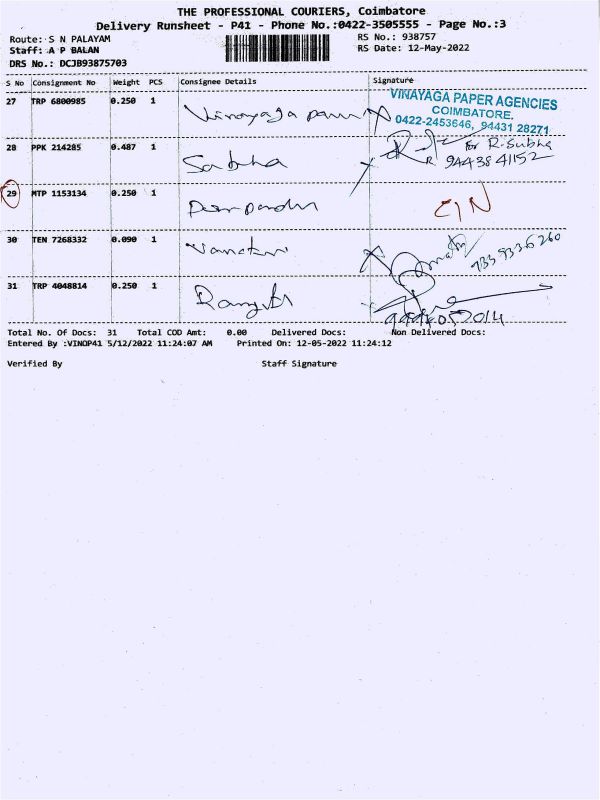 THE PROFESSIONAL COURIERS, Coimbatore
Delivery Runsheet - P41 - Phone No.:0422-3505555 - Page No.:3
Route: S N PALAYAM
RS No.: 938757
Staff: A P BALAN
RS Date: 12-May-2022
DRS No.: DCJB93875703
S No Consignment No Weight PCS Consignee Details Signature
VINAYAGA PAPER AGENCIES
COIMBATORE.
0422-2453646, 94431 28271
27 TRP 6800985 0.250 1 Vinayaga
28 PPK 214285 0.487 1 Sabha for R-Subha
9443841152
29 MTP 1153134 0.250 1
30 TEN 7268332 0.090 1
31 TRP 4048814 0.250 1
Total No. Of Docs: 31 Total COD Amt: 0.00 Delivered Docs: Non Delivered Docs:
Entered By :VINOP41 5/12/2022 11:24:07 AM Printed On: 12-05-2022 11:24:12
Verified By Staff Signature